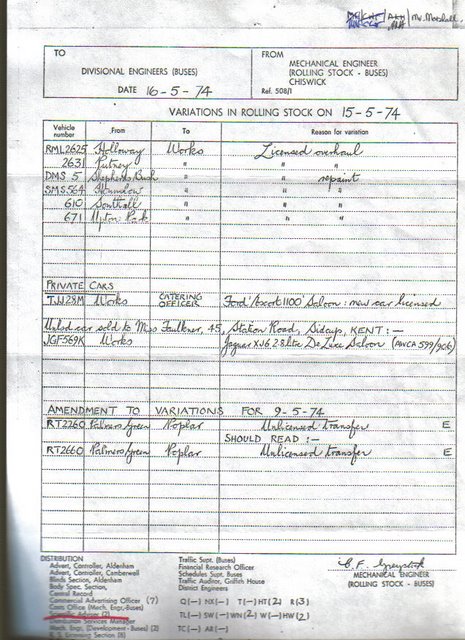 Mr. Marshall.
TO
DIVISIONAL ENGINEERS (BUSES)
DATE 16-5-74
FROM
MECHANICAL ENGINEER
(ROLLING STOCK - BUSES)
CHISWICK
Ref. 508/1
VARIATIONS IN ROLLING STOCK ON 15-5-74
Vehicle number From To Reason for variation
RML2625 Holloway Works Licensed overhaul
2631 Putney " " "
DMS 5 Shepherds Bush " " repaint
SMS 564 Hounslow " " "
610 Southall " " "
671 Upton Park " " "
PRIVATE CARS
TJJ128M Works CATERING OFFICER Ford 'Escort 1100' Saloon: new car licensed
Unlsd car sold to Miss Faulkner, 45, Station Road, Sidcup, KENT:-
JGF569K Works Jaguar XJ6 2.8 litre De Luxe Saloon (AWCA 599/906)
AMENDMENT TO VARIATIONS FOR 9-5-74
RT2260 Palmers Green Poplar Unlicensed Transfer E
SHOULD READ:-
RT2660 Palmers Green Poplar Unlicensed Transfer E
DISTRIBUTION
Advert. Controller, Aldenham
Advert. Controller, Camberwell
Blinds Section, Aldenham
Body Spec. Section,
Central Record
Commercial Advertising Officer (7)
Costs Office (Mech. Engr.-Buses)
Scientific Adviser (2)
Distribution Services Manager
Mech. Engr. (Development-Buses) (2)
B.S. Licensing Section (8)
Traffic Supt. (Buses)
Financial Research Officer
Schedules Supt. Buses
Traffic Auditor, Griffith House
District Engineers
Q (—) NX (—) T (—) HT (2) R (3)
TL (—) SW (—) WN (2) W (—) HW (2)
TC (—) AR (—)
MECHANICAL ENGINEER
(ROLLING STOCK - BUSES)